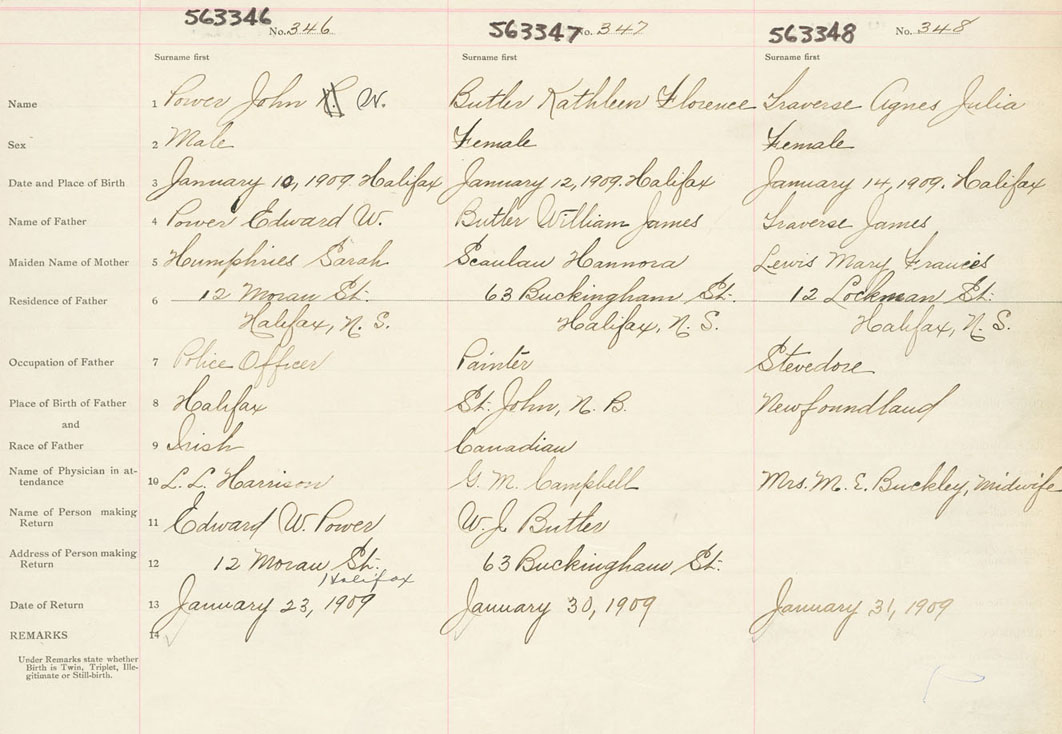 563346 No. 346 563347 No. 347 563348 No. 348
Surname first Surname first Surname first
Name 1 Power John W. Butler Kathleen Florence Traverse Agnes Julia
Sex 2 Male Female Female
Date and Place of Birth 3 January 10, 1909. Halifax January 12, 1909. Halifax January 14, 1909. Halifax
Name of Father 4 Power Edward W. Butler William James Traverse James
Maiden Name of Mother 5 Humphries Sarah Scanlan Hannora Lewis Mary Frances
Residence of Father 6 12 Moran St. 63 Buckingham St. 12 Lockman St.
Halifax, N. S. Halifax, N. S. Halifax, N. S.
Occupation of Father 7 Police Officer Painter Stevedore
Place of Birth of Father 8 Halifax St. John, N. B. Newfoundland
and
Race of Father 9 Irish Canadian
Name of Physician in at-
tendance 10 L. L. Harrison G. M. Campbell Mrs. M. E. Buckley, Midwife
Name of Person making
Return 11 Edward W. Power W. J. Butler
Address of Person making
Return 12 12 Moran St. 63 Buckingham St.
Halifax
Date of Return 13 January 23, 1909 January 30, 1909 January 31, 1909
REMARKS 14
Under Remarks state whether
Birth is Twin, Triplet, Ille-
gitimate or Still-birth.